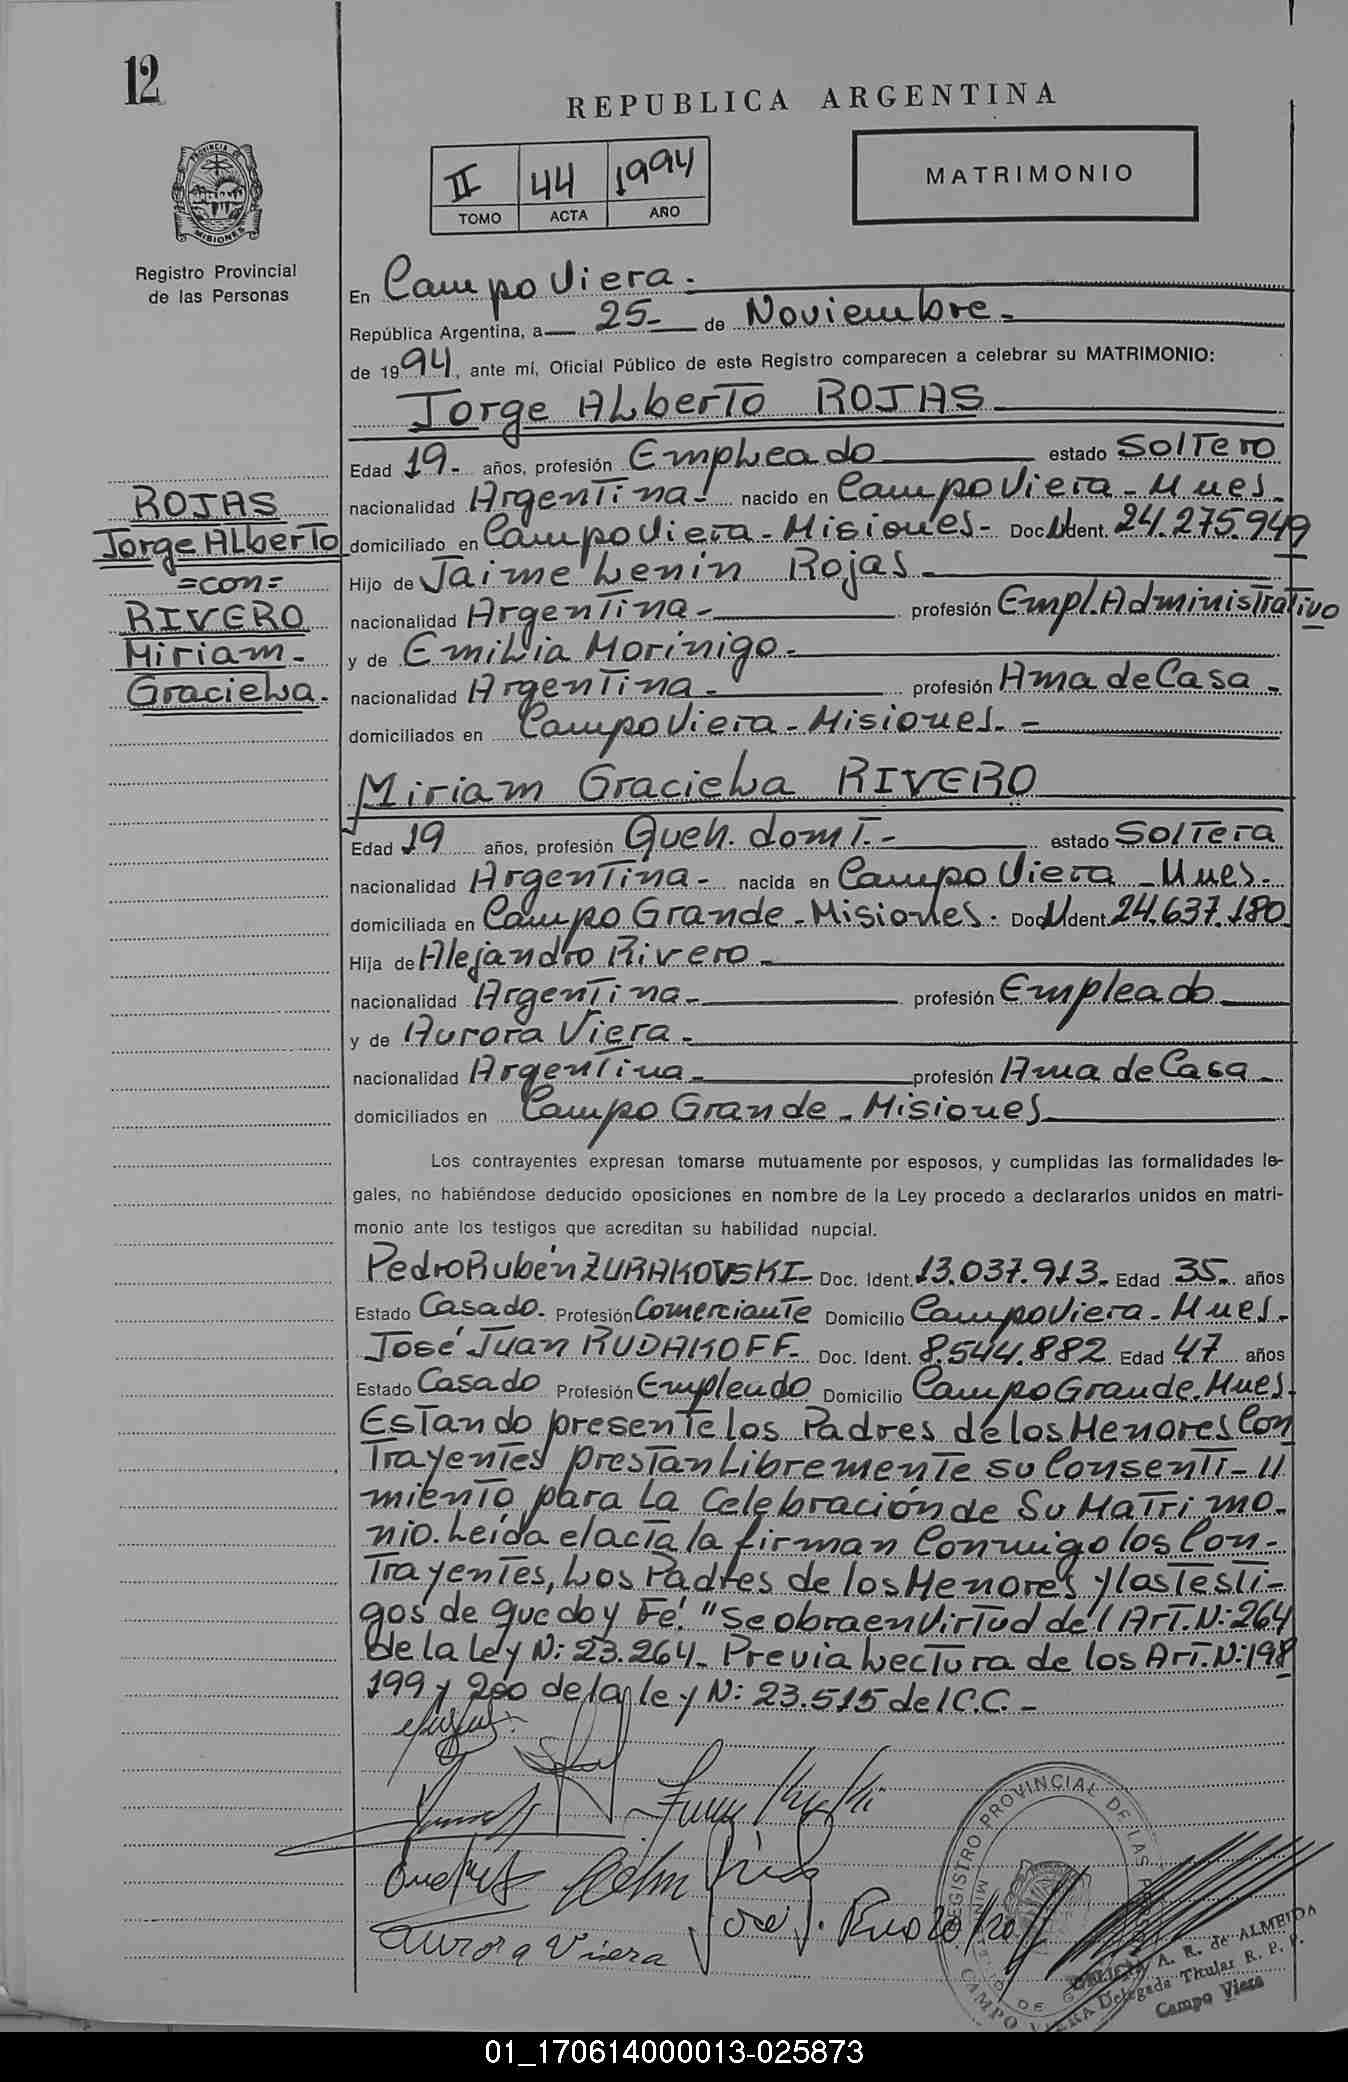 12
REPUBLICA ARGENTINA
II 44 1994
TOMO ACTA AÑO
MATRIMONIO
PROVINCIA DE MISIONES
Registro Provincial
de las Personas
En Campo Viera.
República Argentina, a 25- de Noviembre-
de 1994, ante mí, Oficial Público de este Registro comparecen a celebrar su MATRIMONIO:
Jorge ALberto ROJAS
Edad 19- años, profesión EmpLeado estado Soltero
nacionalidad Argentina- nacido en Campo Viera - Mnes.
domiciliado en Campo Viera - Misiones- Doc. N Ident. 24.275.949
Hijo de Jaime Lenin Rojas-
nacionalidad Argentina- profesión Empl. Administrativo
y de EmiLia Morinigo-
nacionalidad Argentina- profesión Ama de Casa-
domiciliados en Campo Viera - Misiones-
ROJAS
Jorge ALberto
=con=
RIVERO
Miriam-
GracieLa.
Miriam GracieLa RIVERO
Edad 19 años, profesión Queh. domt.- estado Soltera
nacionalidad Argentina- nacida en Campo Viera - Mnes-
domiciliada en Campo Grande - Misiones- Doc. N Ident. 24.637.180
Hija de Alejandro Rivero-
nacionalidad Argentina- profesión Empleado
y de Aurora Viera-
nacionalidad Argentina- profesión Ama de Casa-
domiciliados en Campo Grande - Misiones
Los contrayentes expresan tomarse mutuamente por esposos, y cumplidas las formalidades le-
gales, no habiéndose deducido oposiciones en nombre de la Ley procedo a declararlos unidos en matri-
monio ante los testigos que acreditan su habilidad nupcial.
Pedro Rubén ZURAKOVSKI- Doc. Ident. 13.037.913- Edad 35- años
Estado Casado- Profesión Comerciante Domicilio Campo Viera - Mnes-
José Juan RUDAKOFF- Doc. Ident. 8.544.882 Edad 47 años
Estado Casado Profesión Empleado Domicilio Campo Grande. Mnes.
Estando presente los Padres de los Menores Con
trayentes prestan Libremente su Consenti-
miento para La Celebración de Su Matrimo-
nio. Leída el acta la firman Conmigo los Con-
trayentes, Los Padres de los Menores y los testi-
gos de que doy Fé. "Se obra en Virtud del Art. N: 264
de la Ley N: 23.264- Previa Lectura de los Art. N: 198
199 y 200 de la ley N: 23.515 del C.C.-
Aurora Viera
José J. Rudakoff
REGISTRO PROVINCIAL DE LAS
CAMPO VIERA
A. R. de ALMEIDA
Delegada Titular R. P. P.
Campo Viera
01_170614000013-025873